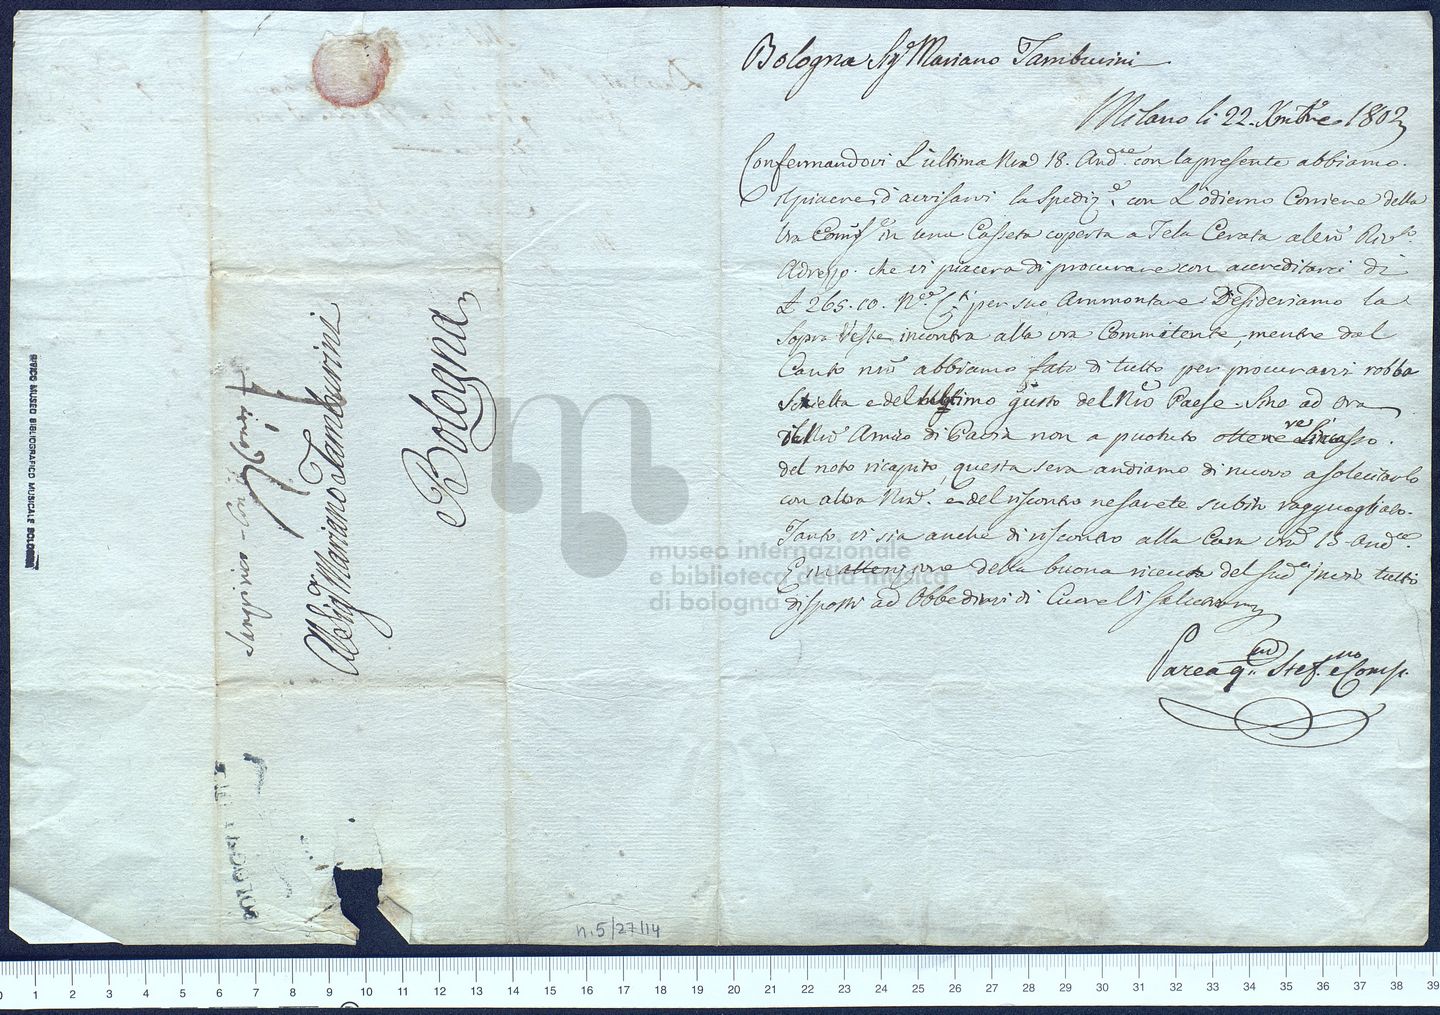 Bologna Sigr Mariano Tamburini
Milano li 22. Xmbre 1802
Confermandovi L'ultima Nra 18. Andte con la presente abbiamo
il piacere d'avvisarvi la Spedize con L'odierno Corriere della
Vra Comse in una Casseta coperta a Tela Cerata al
Adresso. che vi piacerà di procurare con accreditarci di
£ 265.10. per suo Ammontare Desideriamo la
Sopra Veste incontra alla vra Commitente, mentre dal
Canto nro abbiamo fato di tutto per procurarvi robba
Scielta e del ultimo gusto del Nro Paese. Sino ad ora
il Nro Amico di Pavia non a puotuto ottenere
del noto ricapito, questa sera andiamo di nuovo a solecitarlo
con altra Nra. e del riscontro ne sarete subito ragguagliato.
Tanto vi sia anche di riscontro alla Cara vra 15 Andte.
E in attenzione della buona ricevuta del sude pure tutti
disposti ad Obbedirvi di Cuore Vi salutiamo
Parea qm Stef.no e Comp.
Al Sigr Mariano Tamburini
Bologna
CIVICO MUSEO BIBLIOGRAFICO MUSICALE BOLOGNA
n.5/27/14
museo internazionale
e biblioteca della musica
di bologna
0 1 2 3 4 5 6 7 8 9 10 11 12 13 14 15 16 17 18 19 20 21 22 23 24 25 26 27 28 29 30 31 32 33 34 35 36 37 38 39